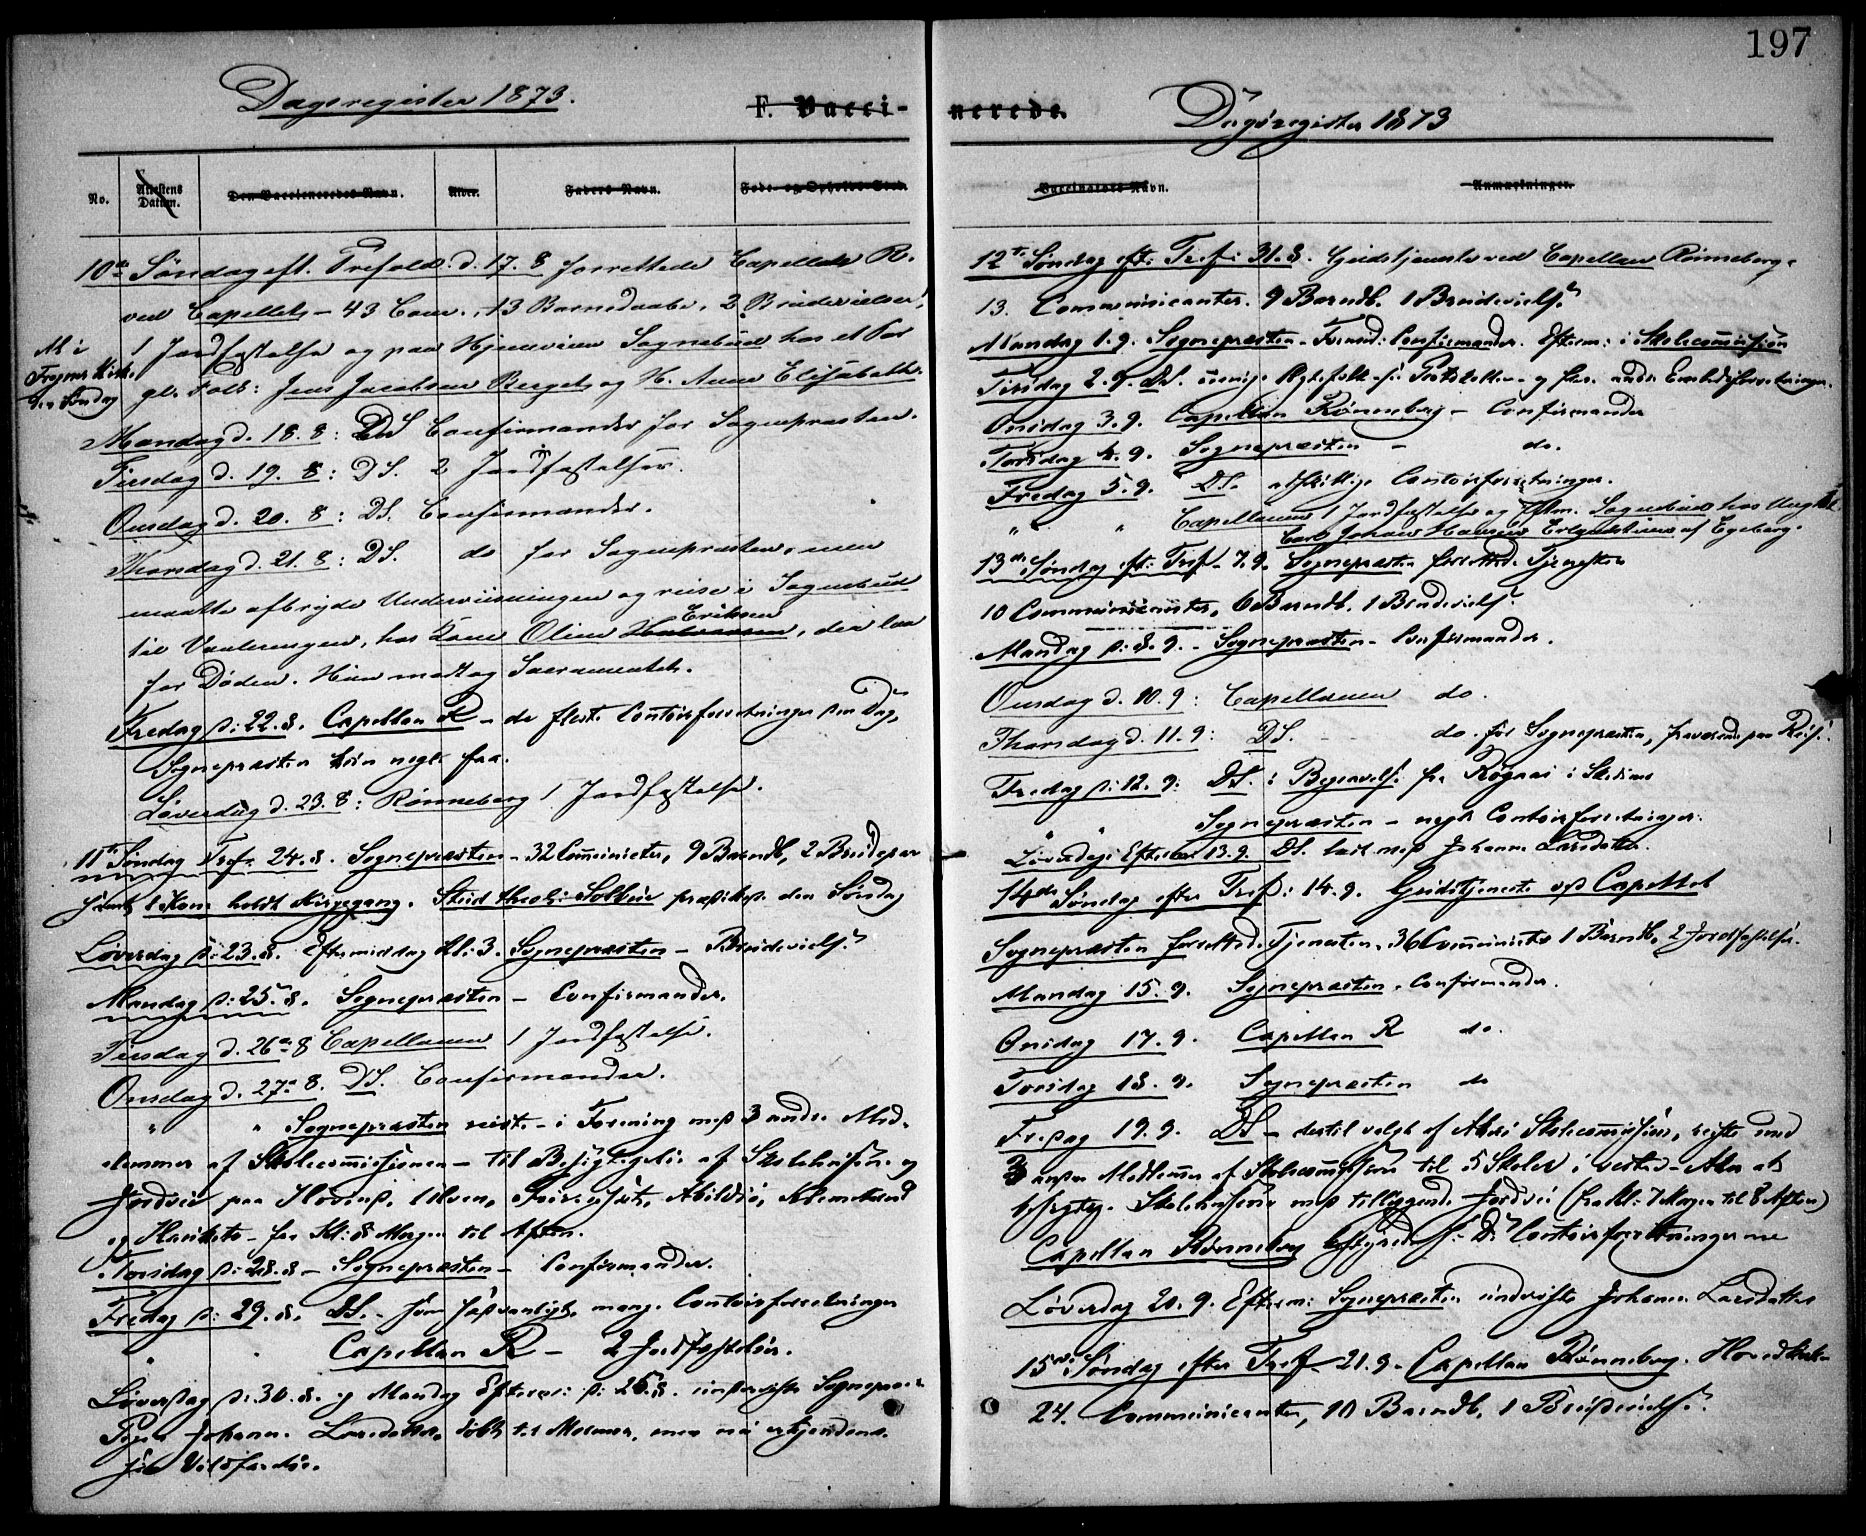 197
Dagsregister 1873.
F. Vacci-
nerede.
Dagsregister 1873
No.
Attestens Datum.
Den Vaccineredes Navn.
Alder.
Faders Navn.
Føde- og Opholds-Sted.
Vaccinators Navn.
Anmærkninger.
10de Søndag eft. Trefold: d. 17.8 forrettede Capellan R.
ved Capellet - 43 Com., 13 Barnedaabe, 2 Brudevielser,
1 Jordfæstelse og paa Hjemveien Sognebud hos et Par
gl. Folk: Jens Jacobsen Berget og H. Anne Elisabeth.
Mandag d. 18.8: DS Confirmander for Sognepræsten.
Tirsdag d. 19.8: DS. 2 Jordfæstelser.
Onsdag d. 20.8: DS. Confirmander.
Thorsdag d. 21.8: DS. do for Sognepræsten, men
maatte afbryde Underviisningen og reise i Sognebud
til Vaaleengen, hos Kone Oline Eriksen, der laa
for Døden. Hun modtog Sacramentet.
Fredag d: 22.8. Capellan R - de fleste Contoirforretninger den Dag,
Sognepræsten kun nogle faa.
Løverdag d. 23.8: Rønneberg 1 Jordfæstelse.
11te Søndag Tref. 24.8. Sognepræsten - 32 Comunicter, 9 Barndb, 2 Brudepar
1 Kone holdt Kirkegang. Stud. theol: præd. den Søndag
Løverdag d: 23.8. Eftermiddag Kl: 3. Sognepræsten - Brudevielse
Mandag d: 25.8. Sognepræsten - Confirmander.
Tirsdag d. 26de 8 Capellanen 1 Jordfæstelse.
Onsdag d. 27de 8. DS. Confirmander.
" " Sognepræsten reiste - i Forening med 3 andre Med-
lemmer af Skolecommissionen - til Besigtigelse af Skolehusene og
Jordvei paa Abildsø,
og - fra Kl: 8 Morgen til Aften.
Torsdag d: 28.8 - Sognepræsten - Confirmander.
Fredag d: 29.8. DS. - som sædvanligt, mange Contoirforretninger
" " Capellan R - 2 Jordfæstelser.
Løverdag d: 30.8. og Mandag Efterm: d: 25.8. underviste Sognepræsten
Pigen Johanne Larsdatter, døbt til Mormon, men nu erkjendende
sin Vildfarelse.
12te Søndag eft: Tref: 31.8. Gudstjeneste ved Capellan Rønneberg.
13. Communicanter. 9 Barndb. 1 Brudevielse
Mandag 1.9. Sognepræsten - Formid: Confirmander. Efterm: i Skolecommission
Tirsdag 2.9. DS. Embedsforretninger.
Onsdag 3.9. Capellan Rønneberg - Confirmander
Torsdag 4.9. Sognepræsten - do.
Fredag 5.9. DS. adskillige Contoirforretninger.
" " Capellanen 1 Jordfæstelse og Sognebud hos Ungkarl
Carl Johan Hansen af Egeberg.
13de Søndag eft: Tref. 7.9. Sognepræsten forrettede Tjenesten
10 Communicanter, 6 Barndb. 1 Brudevielse
Mandag d: 8.9. - Sognepræsten - Confirmander.
Onsdag d. 10.9: Capellanen do.
Thorsdag d. 11.9: DS. - do. for Sognepræsten, fraværende paa Reise
Fredag d: 12.9: DS.: Begravelse fra
" " Sognepræsten - nogle Contoirforretninger.
Løverdag Efterm 13.9. DS. læst med Johanne Larsdatter.
14de Søndag efter Tref: 14.9. Gudstjeneste ved Capellet
Sognepræsten forrettede Tjenesten. 36 Comunicter 1 Barndb. 2 Jordfæstelser.
Mandag 15.9. Sognepræsten. Confirmander.
Onsdag 17.9. Capellan R do.
Torsdag 18.9. Sognepræsten do
Fredag 19.9. DS - dertil valgt af Akers Skolecommission, reiste med
3 andre Medlemmer af Skolecommissionen til 5 Skoler i vestre Aker at
besigtige Skolehusene med tilliggende Jordvei (fra Kl: 7 Morgen til 8 Aften)
Capellan Rønneberg Contoirforretningerne
Løverdag 20.9. Efterm: Sognepræsten underviste Johanne Larsdatter
15de Søndag efter Tref 21.9. Capellan Rønneberg. Hovedkirken
24. Communicanter, 10 Barndb. 1 Brudevielse